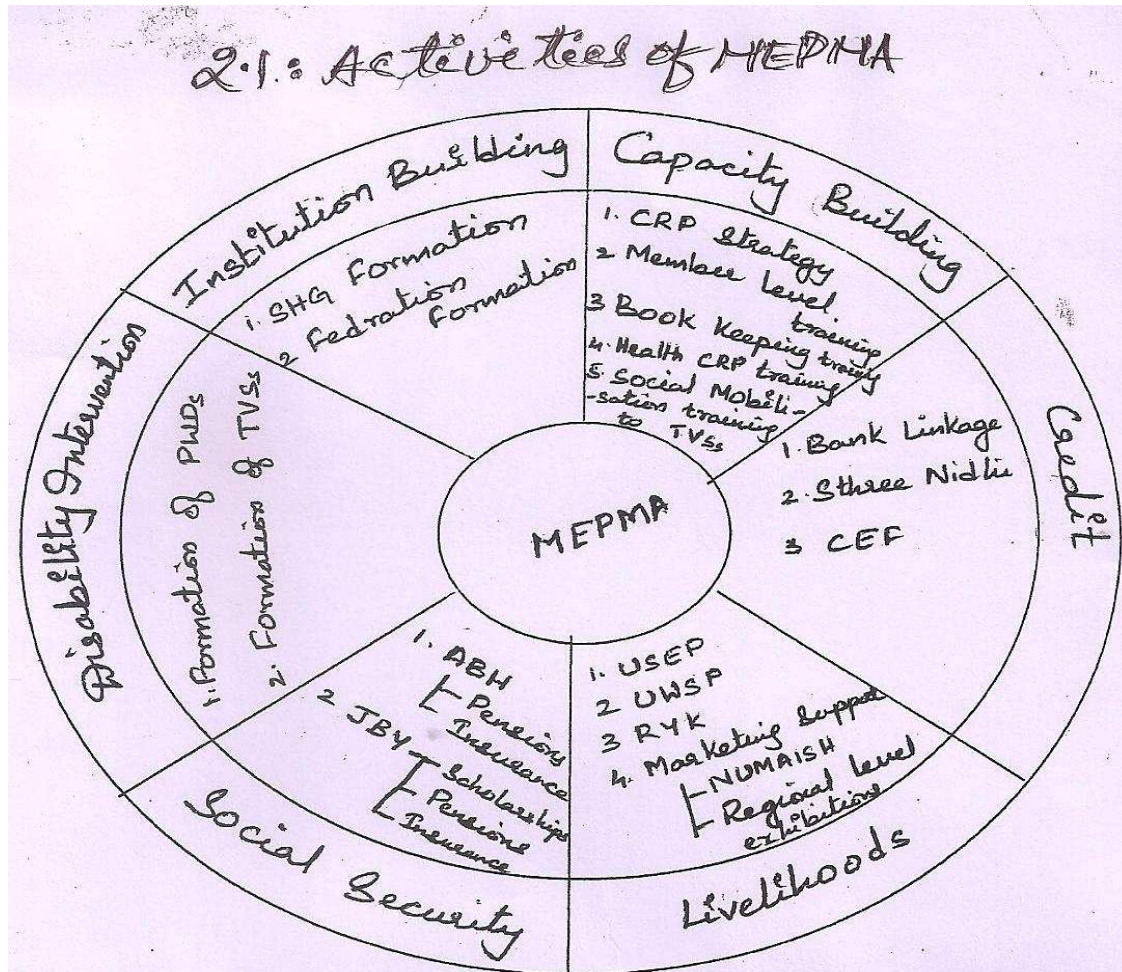 2.1.: Activeties of MEPMA
Institution Building
1. SHG Formation
2 Fedration
Formation
Capacity Building
1. CRP Strategy
2 Member Level
training
3 Book Keeping trainig
4. Health CRP training
5. Social Mobili-
-sation training
to TVSs
Credit
1. Bank Linkage
2. Sthree Nidhi
3 CEF
Livelihoods
1. USEP
2 UWSP
3 RYK
4. Marketing Support
NUMAISH
Regional Level
exhibitions
Social Security
1. ABH
Pensions
Insurance
2 JBY
Scholarships
Pensions
Insurance
Disability Intervention
1. Formation of PWDs
2. Formation of TVSs
MEPMA